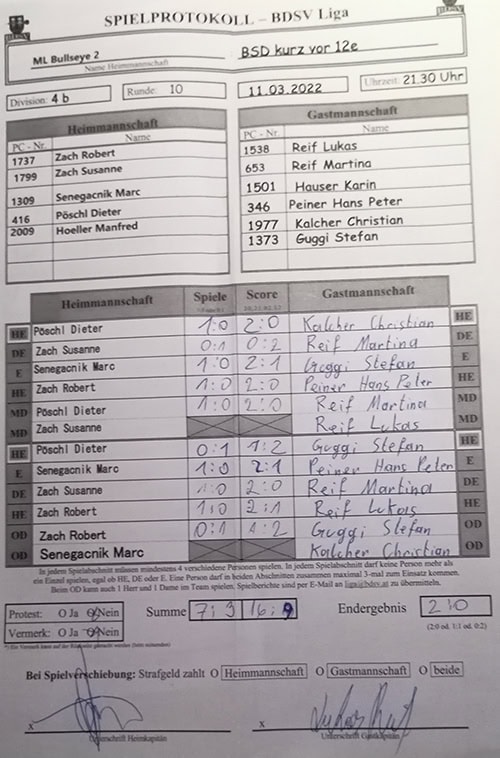 SPIELPROTOKOLL – BDSV Liga
ML Bullseye 2 BSD kurz vor 12e
Name Heimmannschaft
Division: 4 b Runde: 10 11.03.2022 Uhrzeit: 21.30 Uhr
Heimmannschaft Gastmannschaft
PC - Nr. Name PC - Nr. Name
1737 Zach Robert 1538 Reif Lukas
1799 Zach Susanne 653 Reif Martina
1309 Senegacnik Marc 1501 Hauser Karin
416 Pöschl Dieter 346 Peiner Hans Peter
2009 Hoeller Manfred 1977 Kalcher Christian
1373 Guggi Stefan
Heimmannschaft Spiele Score Gastmannschaft
HE Pöschl Dieter 1:0 2:0 Kalcher Christian HE
DE Zach Susanne 0:1 0:2 Reif Martina DE
E Senegacnik Marc 1:0 2:1 Guggi Stefan E
HE Zach Robert 1:0 2:0 Peiner Hans Peter HE
MD Pöschl Dieter 1:0 2:0 Reif Martina MD
MD Zach Susanne Reif Lukas MD
HE Pöschl Dieter 0:1 1:2 Guggi Stefan HE
E Senegacnik Marc 1:0 2:1 Peiner Hans Peter E
DE Zach Susanne 1:0 2:0 Reif Martina DE
HE Zach Robert 1:0 2:1 Reif Lukas HE
OD Zach Robert 0:1 1:2 Guggi Stefan OD
OD Senegacnik Marc Kalcher Christian OD
In jedem Spielabschnitt müssen mindestens 4 verschiedene Personen spielen. In jedem Spielabschnitt darf keine Person mehr als
ein Einzel spielen, egal ob HE, DE oder E. Eine Person darf in beiden Abschnitten zusammen maximal 3-mal zum Einsatz kommen.
Beim OD kann auch 1 Herr und 1 Dame im Team spielen. Spielberichte sind per E-Mail an liga@bdsv.at zu übermitteln.
Protest: O Ja O Nein Summe 7:3 16:9 Endergebnis 2:0
Vermerk: O Ja O Nein (2:0 od. 1:1 od. 0:2)
Bei Spielverschiebung: Strafgeld zahlt O Heimmannschaft O Gastmannschaft O beide
x x Lukas Reif
Unterschrift Heimkapitän Unterschrift Gastkapitän